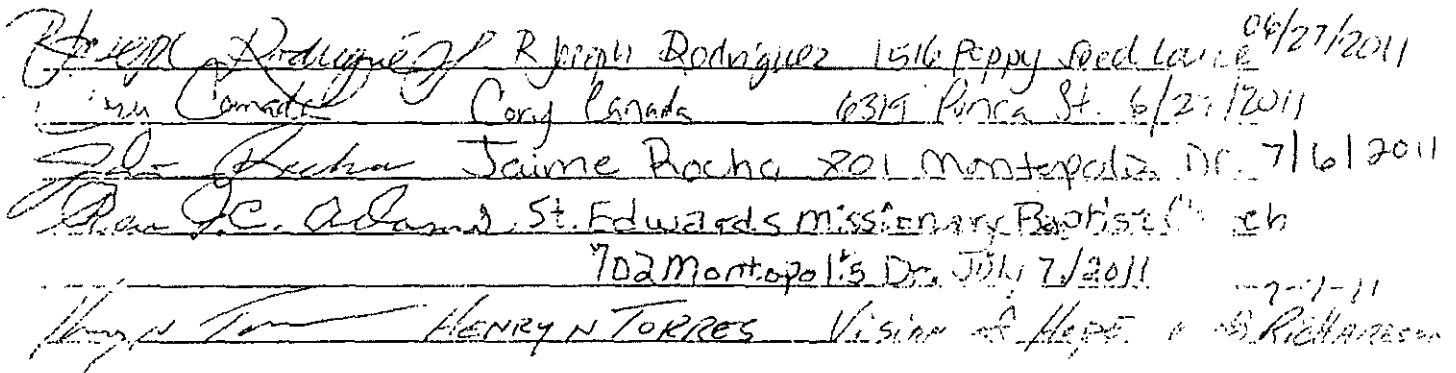 R Joseph Rodriguez R Joseph Rodriguez 1516 Poppy Seed Lane 06/27/2011
Cory Canada Cory Canada 6319 Ponca St. 6/27/2011
Jaime Rocha 801 Montopolis Dr. 7/6/2011
Rev J.C. Adams St. Edwards Missionary Baptist Church
702 Montopolis Dr. July 7/2011
Henry N Torres HENRY N TORRES Vision of Hope Richardson 7-7-11